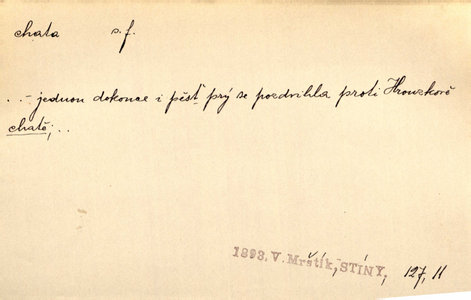 chata s. f.
..- jednou dokonce i pěst prý se pozdvihla proti Hrouzkově
chatě;..
1893, V. Mrštík, STÍNY, 127, 11